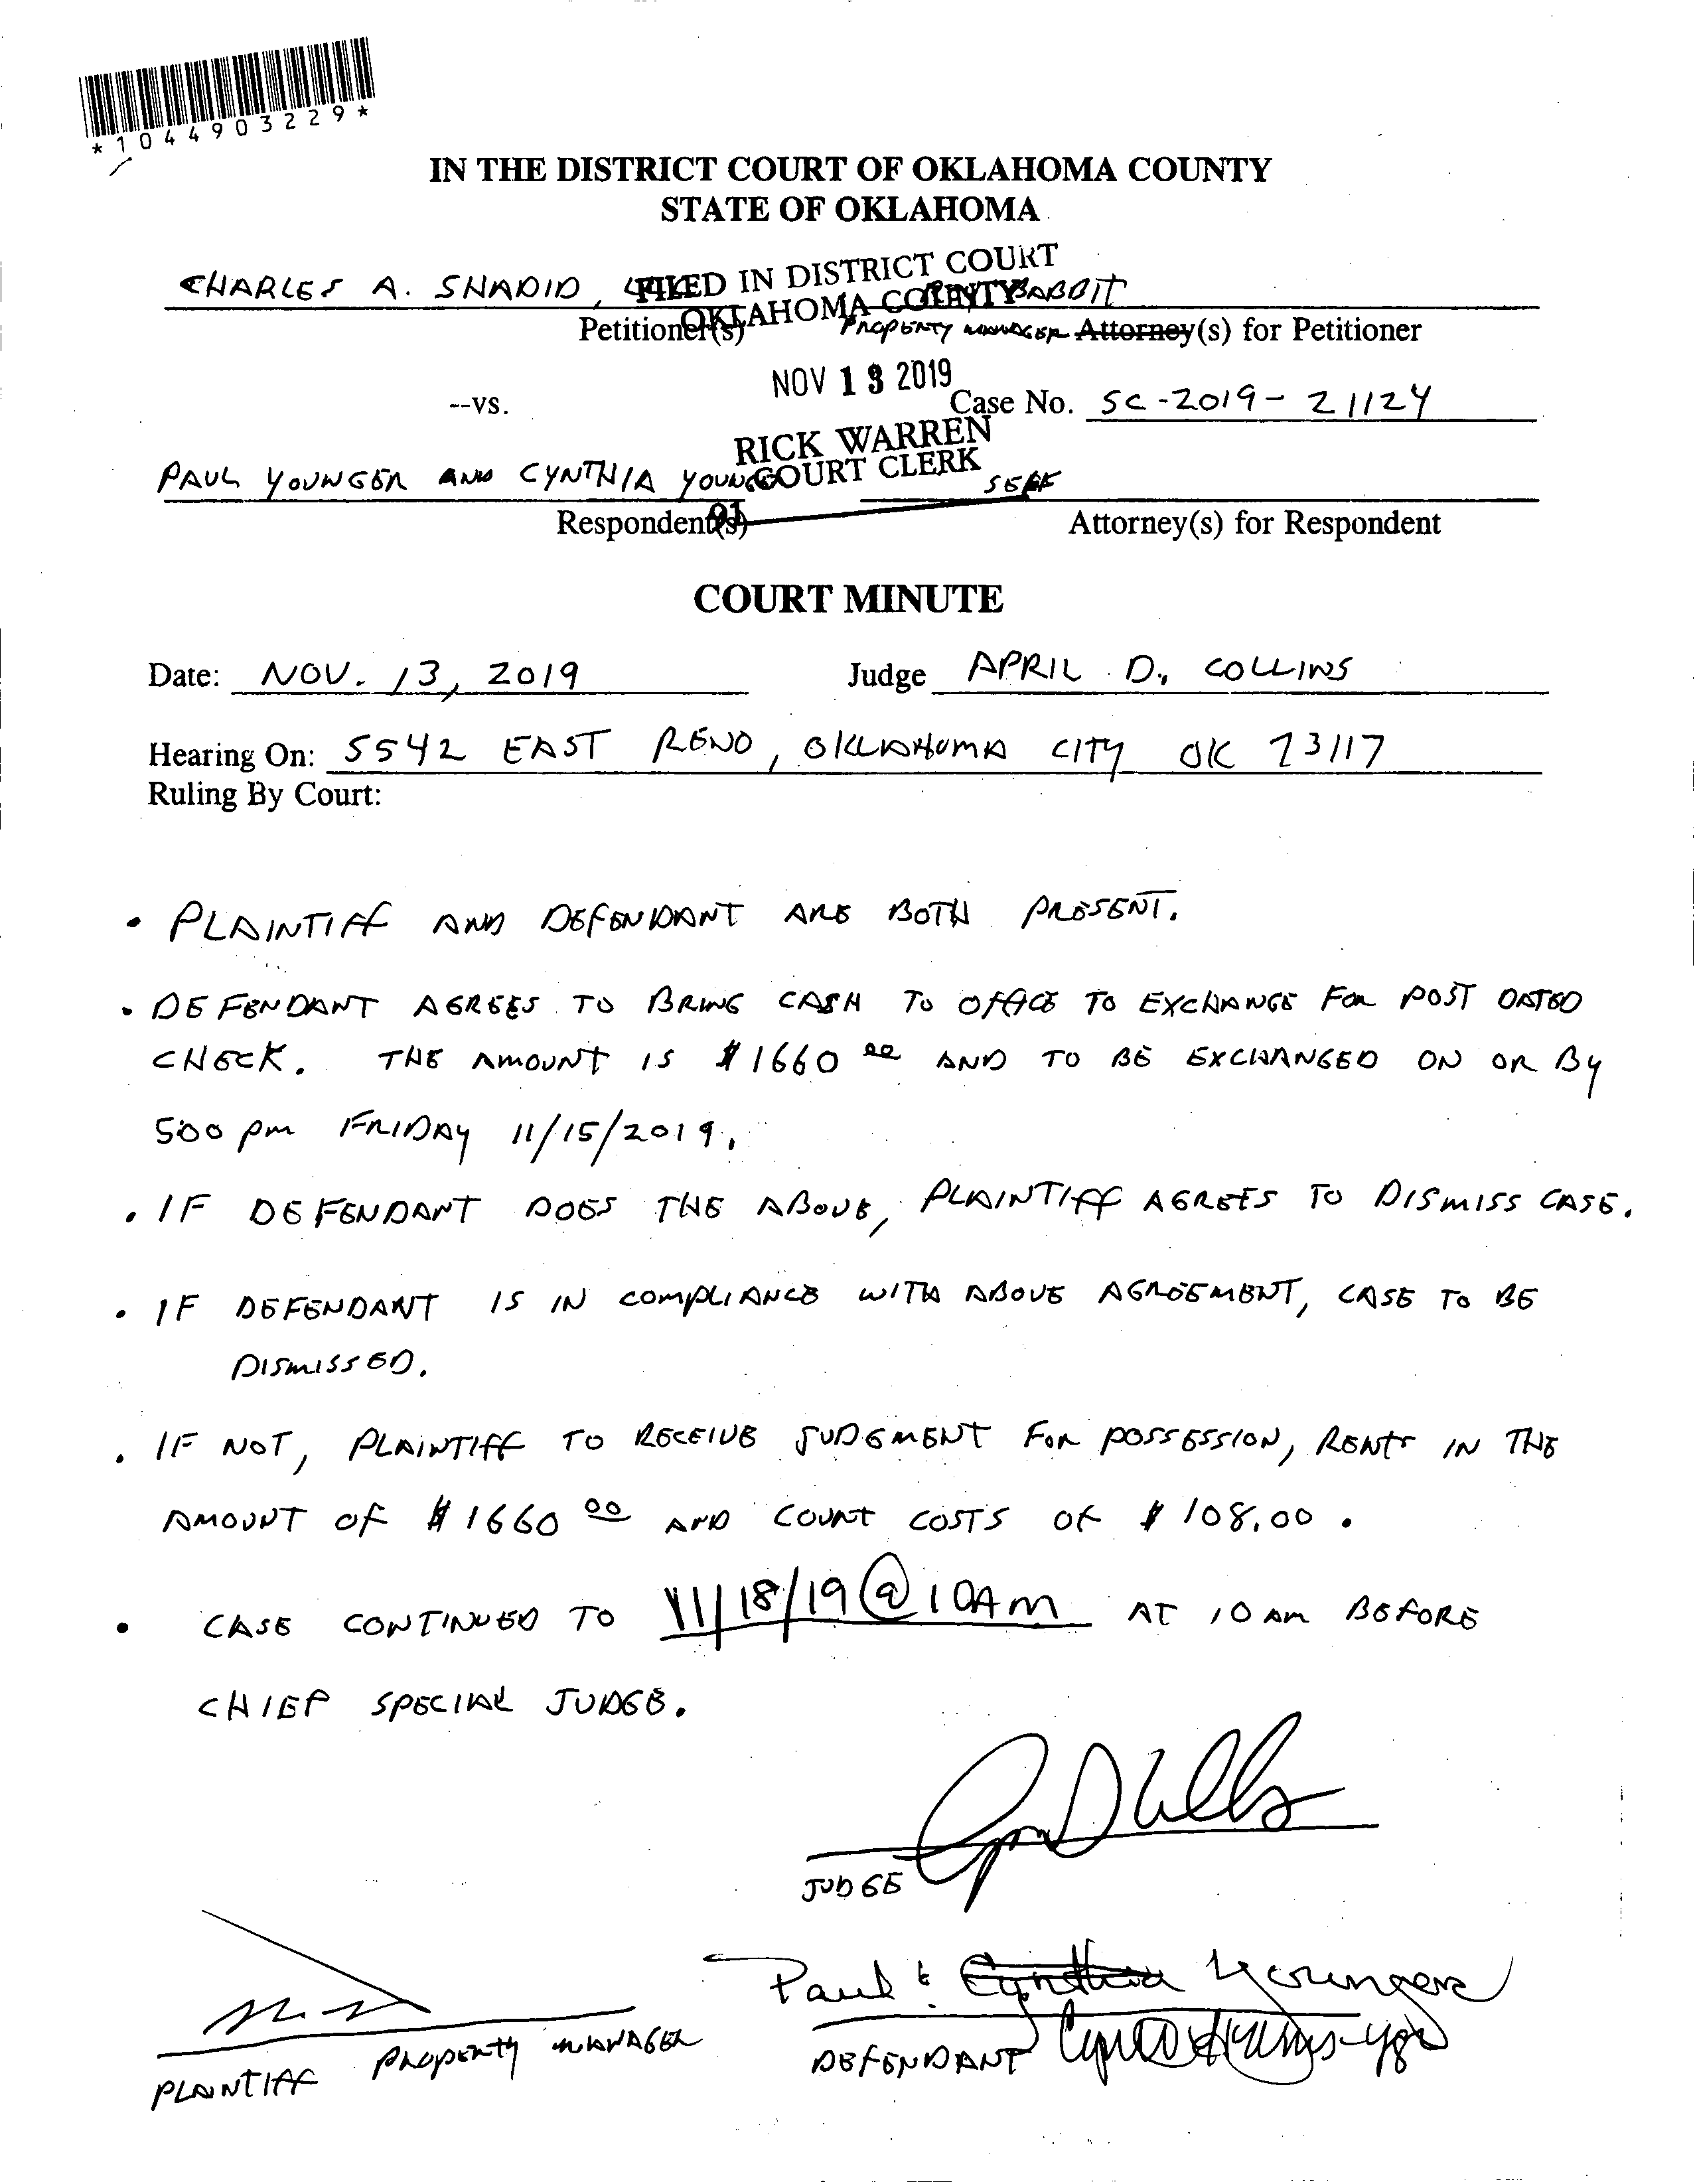 *1044903229*
IN THE DISTRICT COURT OF OKLAHOMA COUNTY
STATE OF OKLAHOMA
FILED IN DISTRICT COURT
OKLAHOMA COUNTY
CHARLES A. SHADID, BABBIT
Petitioner(s) PROPERTY MANAGER Attorney(s) for Petitioner
NOV 13 2019
--vs. Case No. SC-2019-21124
RICK WARREN
COURT CLERK
PAUL YOUNGER AND CYNTHIA SELF
Respondent(s) Attorney(s) for Respondent
COURT MINUTE
Date: NOV. 13, 2019 Judge APRIL D. COLLINS
Hearing On: 5542 EAST RENO, OKLAHOMA CITY OK 73117
Ruling By Court:
• PLAINTIFF AND DEFENDANT ARE BOTH PRESENT.
• DEFENDANT AGREES TO BRING CASH TO OFFICE TO EXCHANGE FOR POST DATED
CHECK. THE AMOUNT IS $1660 00 AND TO BE EXCHANGED ON OR BY
5:00 pm FRIDAY 11/15/2019.
• IF DEFENDANT DOES THE ABOVE, PLAINTIFF AGREES TO DISMISS CASE.
• IF DEFENDANT IS IN COMPLIANCE WITH ABOVE AGREEMENT, CASE TO BE
DISMISSED.
• IF NOT, PLAINTIFF TO RECEIVE JUDGMENT FOR POSSESSION, RENTS IN THE
AMOUNT OF $1660 00 AND COURT COSTS OF $108.00.
• CASE CONTINUED TO 11/18/19 @ 10AM AT 10 AM BEFORE
CHIEF SPECIAL JUDGE.
JUDGE
Paul & Cynthia Youngers
PLAINTIFF PROPERTY MANAGER DEFENDANT